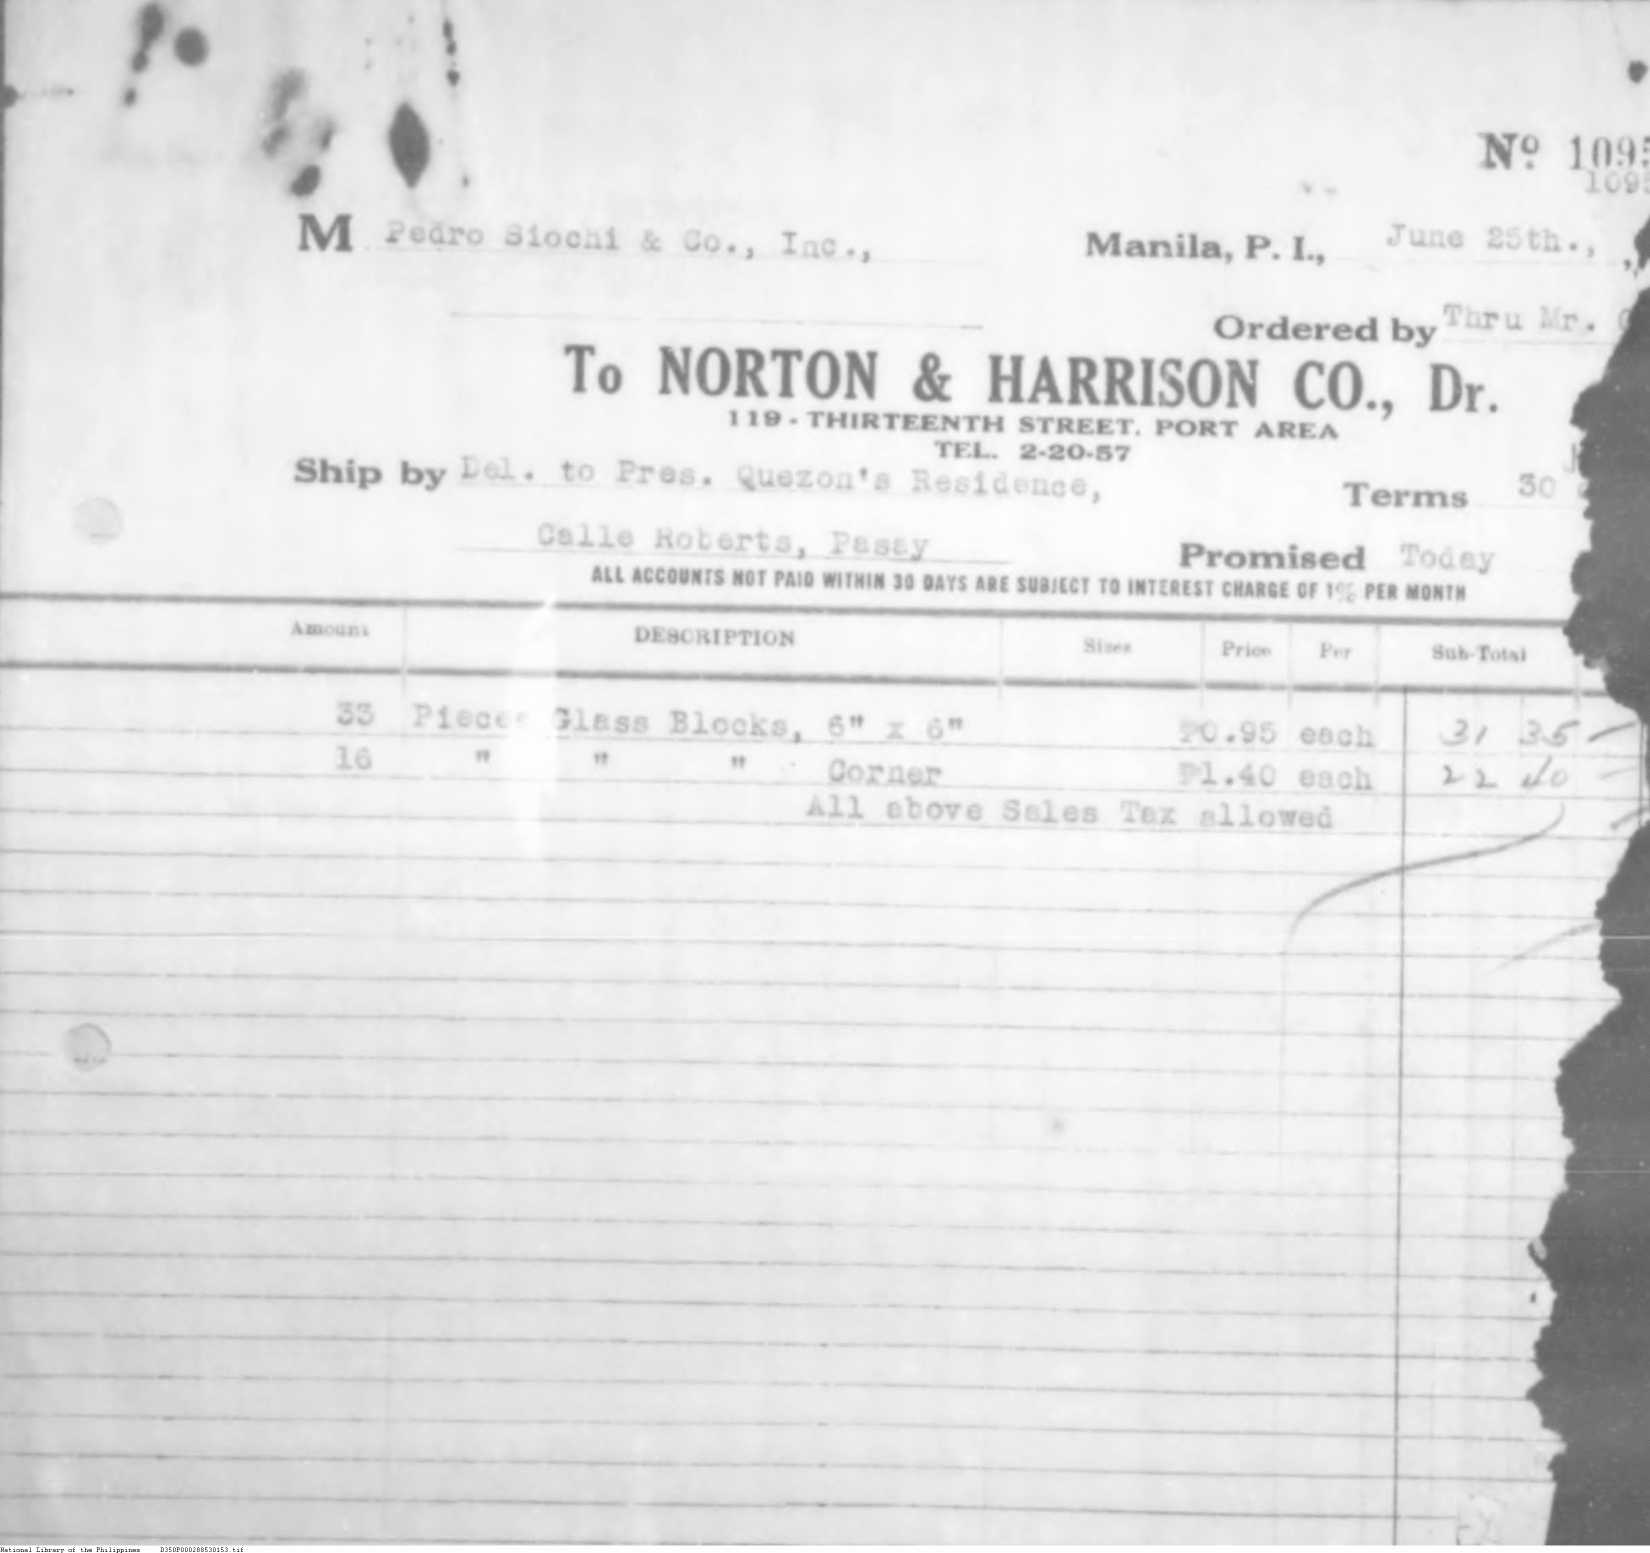 Nº 1095
1095
M Pedro Siochi & Co., Inc., Manila, P. I., June 25th.,
Ordered by Thru Mr.
To NORTON & HARRISON CO., Dr.
119 - THIRTEENTH STREET. PORT AREA
TEL. 2-20-57
Ship by Del. to Pres. Quezon's Residence, Terms 30
Calle Roberts, Pasay Promised Today
ALL ACCOUNTS NOT PAID WITHIN 30 DAYS ARE SUBJECT TO INTEREST CHARGE OF 1% PER MONTH
Amount DESCRIPTION Sizes Price Per Sub-Total
33 Pieces Glass Blocks, 6" x 6" ₱0.95 each 31 35
16 " " " Corner ₱1.40 each 22 40
All above Sales Tax allowed
National Library of the Philippines D350P000288530153.tif